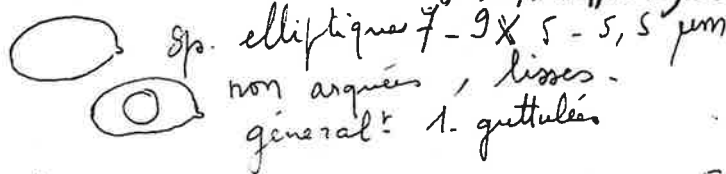 Sp. elliptiques 7-9 X 5-5,5 µm
non arquées, lisses.
général.t 1-guttulées